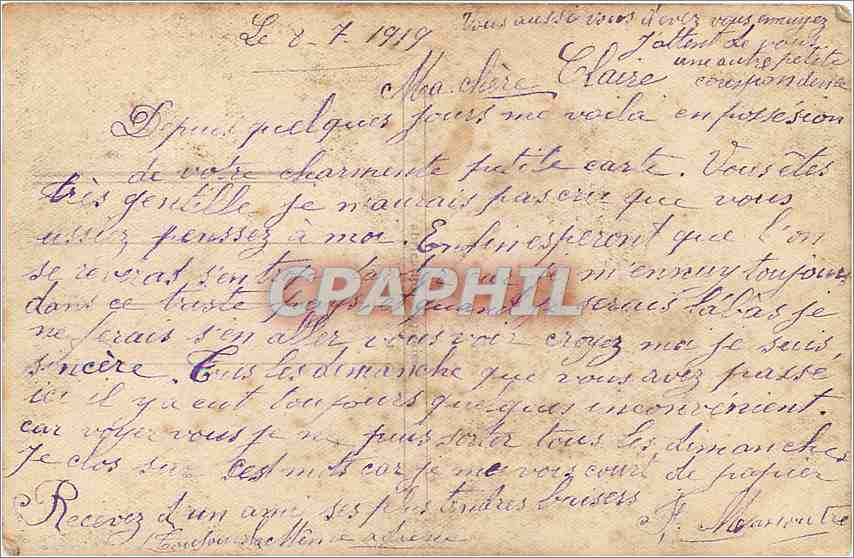 Le 8-7-1919
Vous aussi vous devez vous ennuyez
J'attent de vous
une autre petite
corespondense
Ma chère Claire
Depuis quelques jours me voila en possésion
de votre charmente petite carte. Vous êtes
très gentille je n'aurais pas cru que vous
ussiez penssez à moi. Enfin esperont que l'on
se revoras s'en trop m'ennuy toujours
dans ce triste pays et quand je serais làbàs je
ne ferais s'en aller vous voir croyez moi je suis
sincère. Tous les dimanche que vous avez passé
ici il y a eut toujours quelques inconvénient.
car voyez vous je ne puis sorter tous les dimanches
Je clos sur ces mots car je me vois court de papier
Recevez d'un ami ses plus tendres baisers
Toujours la Même adresse
CPAPHIL